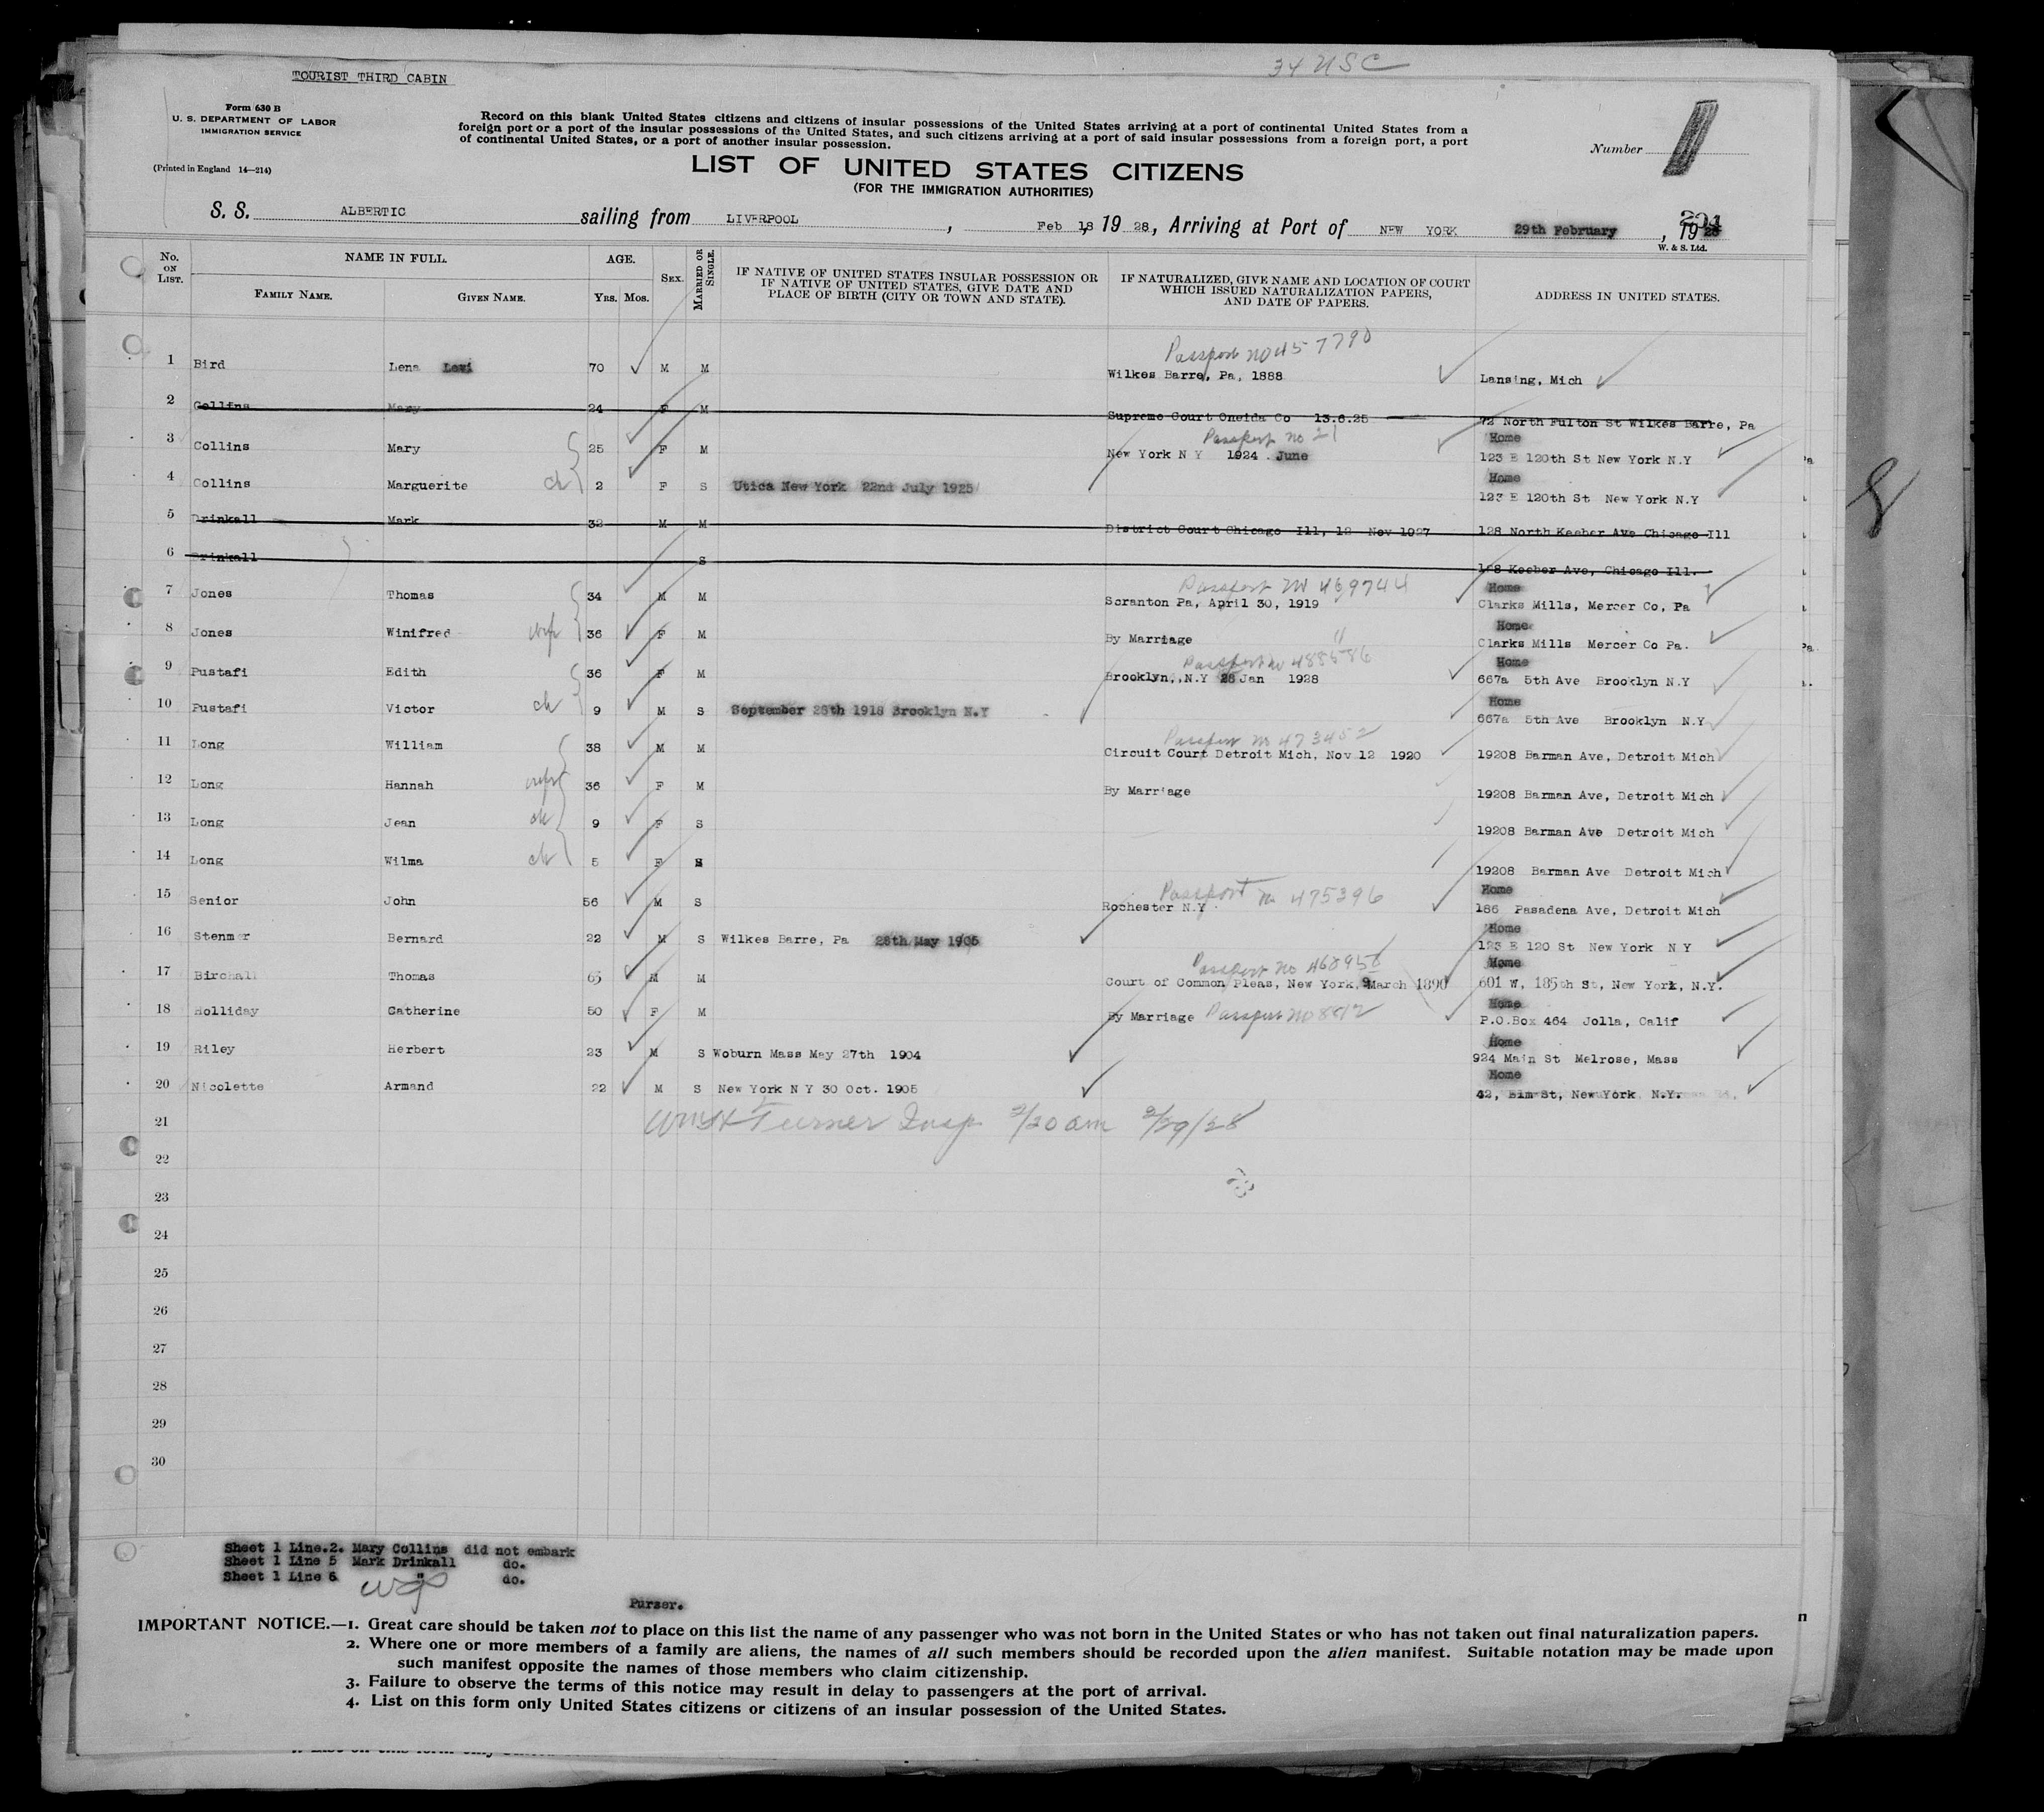 34 USC
TOURIST THIRD CABIN
Form 630 B
U. S. DEPARTMENT OF LABOR
IMMIGRATION SERVICE
(Printed in England 14—214)
Record on this blank United States citizens and citizens of insular possessions of the United States arriving at a port of continental United States from a
foreign port or a port of the insular possessions of the United States, and such citizens arriving at a port of said insular possessions from a foreign port, a port
of continental United States, or a port of another insular possession.
Number 1
LIST OF UNITED STATES CITIZENS
(FOR THE IMMIGRATION AUTHORITIES)
S. S. ALBERTIC sailing from LIVERPOOL, Feb 18, 19 28, Arriving at Port of NEW YORK 29th February, 19 28
W. & S. Ltd.
No. ON LIST. NAME IN FULL. FAMILY NAME. GIVEN NAME. AGE. YRS. MOS. SEX. MARRIED OR SINGLE. IF NATIVE OF UNITED STATES INSULAR POSSESSION OR IF NATIVE OF UNITED STATES, GIVE DATE AND PLACE OF BIRTH (CITY OR TOWN AND STATE). IF NATURALIZED, GIVE NAME AND LOCATION OF COURT WHICH ISSUED NATURALIZATION PAPERS, AND DATE OF PAPERS. ADDRESS IN UNITED STATES.
Passport no 457790
1 Bird Lena Levi 70 M M Wilkes Barre, Pa, 1888 Lansing, Mich
2 Collins Mary 24 F M Supreme Court Oneida Co 13.6.25 72 North Fulton St Wilkes Barre, Pa
Passport no 21 Home
3 Collins Mary 25 F M New York N Y 1924 June 123 E 120th St New York N.Y
Home
4 Collins Marguerite ch 2 F S Utica New York 22nd July 1925 123 E 120th St New York N.Y
5 Drinkall Mark 32 M M District Court Chicago Ill, 12 Nov 1927 128 North Keeber Ave Chicago Ill
6 Drinkall S 128 Keeber Ave, Chicago Ill.
Passport no 469744 Home
7 Jones Thomas 34 M M Scranton Pa, April 30, 1919 Clarks Mills, Mercer Co, Pa
Home
8 Jones Winifred wife 36 F M By Marriage " Clarks Mills Mercer Co Pa.
Passport no 488586 Home
9 Pustafi Edith 36 F M Brooklyn,.N.Y 28 Jan 1928 667a 5th Ave Brooklyn N.Y
Home
10 Pustafi Victor ch 9 M S September 28th 1918 Brooklyn N.Y 667a 5th Ave Brooklyn N.Y
Passport no 473452
11 Long William 38 M M Circuit Court Detroit Mich, Nov 12 1920 19208 Barman Ave, Detroit Mich
12 Long Hannah wife 36 F M By Marriage 19208 Barman Ave, Detroit Mich
13 Long Jean ch 9 F S 19208 Barman Ave Detroit Mich
14 Long Wilma ch 5 F S 19208 Barman Ave Detroit Mich
Passport no 475396 Home
15 Senior John 56 M S Rochester N.Y 186 Pasadena Ave, Detroit Mich
Home
16 Stenmer Bernard 22 M S Wilkes Barre, Pa 28th May 1905 123 E 120 St New York N Y
Passport no Home
17 Birchall Thomas 65 M M Court of Common Pleas, New York, 9 March 1890 601 W, 185th St, New York, N.Y.
Home
18 Holliday Catherine 50 F M By Marriage Passport no 8812 P.O.Box 464 Jolla, Calif
Home
19 Riley Herbert 23 M S Woburn Mass May 27th 1904 924 Main St Melrose, Mass
Home
20 Nicolette Armand 22 M S New York N Y 30 Oct. 1905 42, Elm St, New York N.Y.
21 Wm H Turner Insp 9/20 am 2/29/28
22
23
24
25
26
27
28
29
30
Sheet 1 Line.2. Mary Collins did not embark
Sheet 1 Line 5 Mark Drinkall do.
Sheet 1 Line 6 " do.
Purser.
IMPORTANT NOTICE.—1. Great care should be taken not to place on this list the name of any passenger who was not born in the United States or who has not taken out final naturalization papers.
2. Where one or more members of a family are aliens, the names of all such members should be recorded upon the alien manifest. Suitable notation may be made upon
such manifest opposite the names of those members who claim citizenship.
3. Failure to observe the terms of this notice may result in delay to passengers at the port of arrival.
4. List on this form only United States citizens or citizens of an insular possession of the United States.